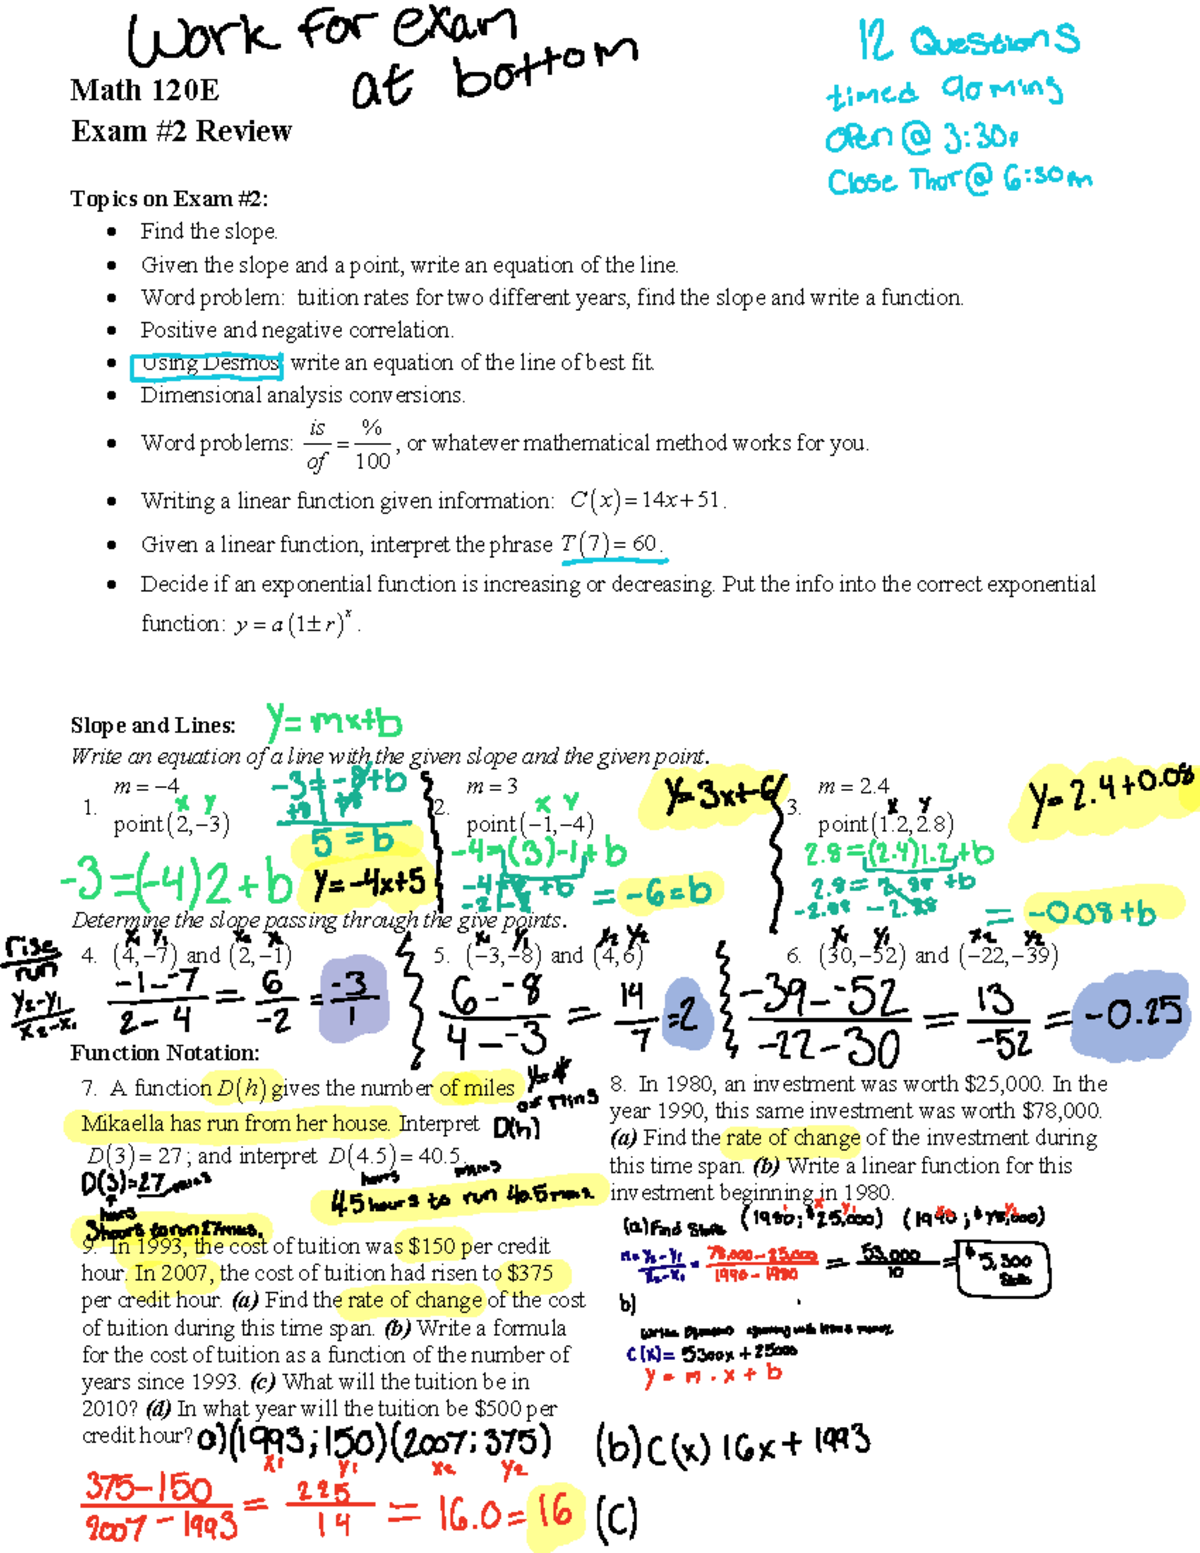 Work for exam
at bottom
12 Questions
timed 90 mins
open @ 3:30p
Close Thur @ 6:30pm
Math 120E
Exam #2 Review
Topics on Exam #2:
• Find the slope.
• Given the slope and a point, write an equation of the line.
• Word problem: tuition rates for two different years, find the slope and write a function.
• Positive and negative correlation.
• Using Desmos write an equation of the line of best fit.
• Dimensional analysis conversions.
• Word problems: is/of = %/100, or whatever mathematical method works for you.
• Writing a linear function given information: C(x) = 14x + 51.
• Given a linear function, interpret the phrase T(7) = 60.
• Decide if an exponential function is increasing or decreasing. Put the info into the correct exponential
function: y = a(1 ± r)^x.
Slope and Lines: y = mx+b
Write an equation of a line with the given slope and the given point.
1. m = −4
point(2,−3)
x y
-3 = -8+b
+8 +8
5 = b
-3=(-4)2+b
y=-4x+5
2. m = 3
point(−1,−4)
x y
y=3x+-6
-4=(3)-1+b
= -6=b
3. m = 2.4
point(1.2, 2.8)
x y
y=2.4+0.08
2.8=(2.4)1.2+b
2.8= 2.88 +b
-2.88 -2.88
= -0.08+b
Determine the slope passing through the give points.
rise/run
y2-y1/x2-x1
x1 y1 x2
4. (4,−7) and (2,−1)
-1--7/2-4 = 6/-2 = -3/1
x1 y1 x2 y2
5. (−3,−8) and (4,6)
6--8/4--3 = 14/7 =2
x1 y1 x2 y2
6. (30,−52) and (−22,−39)
-39--52/-22-30 = 13/-52 = -0.25
Function Notation:
7. A function D(h) gives the number of miles
Mikaella has run from her house. Interpret
D(3) = 27; and interpret D(4.5) = 40.5.
D(h)
D(3)=27 miles
hours
hours miles
3 hours to run 27 miles.
4.5 hours to run 40.5 miles
8. In 1980, an investment was worth $25,000. In the
year 1990, this same investment was worth $78,000.
(a) Find the rate of change of the investment during
this time span. (b) Write a linear function for this
investment beginning in 1980.
(a) Find Slope (1980; $25,000) (1990; $78,000)
m= y2-y1/x2-x1 = 78,000-25,000/1990-1980 = 53,000/10 = $5,300
b)
C(x)= 5300x + 25000
y = m · x + b
9. In 1993, the cost of tuition was $150 per credit
hour. In 2007, the cost of tuition had risen to $375
per credit hour. (a) Find the rate of change of the cost
of tuition during this time span. (b) Write a formula
for the cost of tuition as a function of the number of
years since 1993. (c) What will the tuition be in
2010? (d) In what year will the tuition be $500 per
credit hour?
a)(1993;150)(2007;375)
x1 y1 x2 y2
375-150/2007-1993 = 225/14 = 16.0 = 16
(b) C(x) 16x+ 1993
(c)